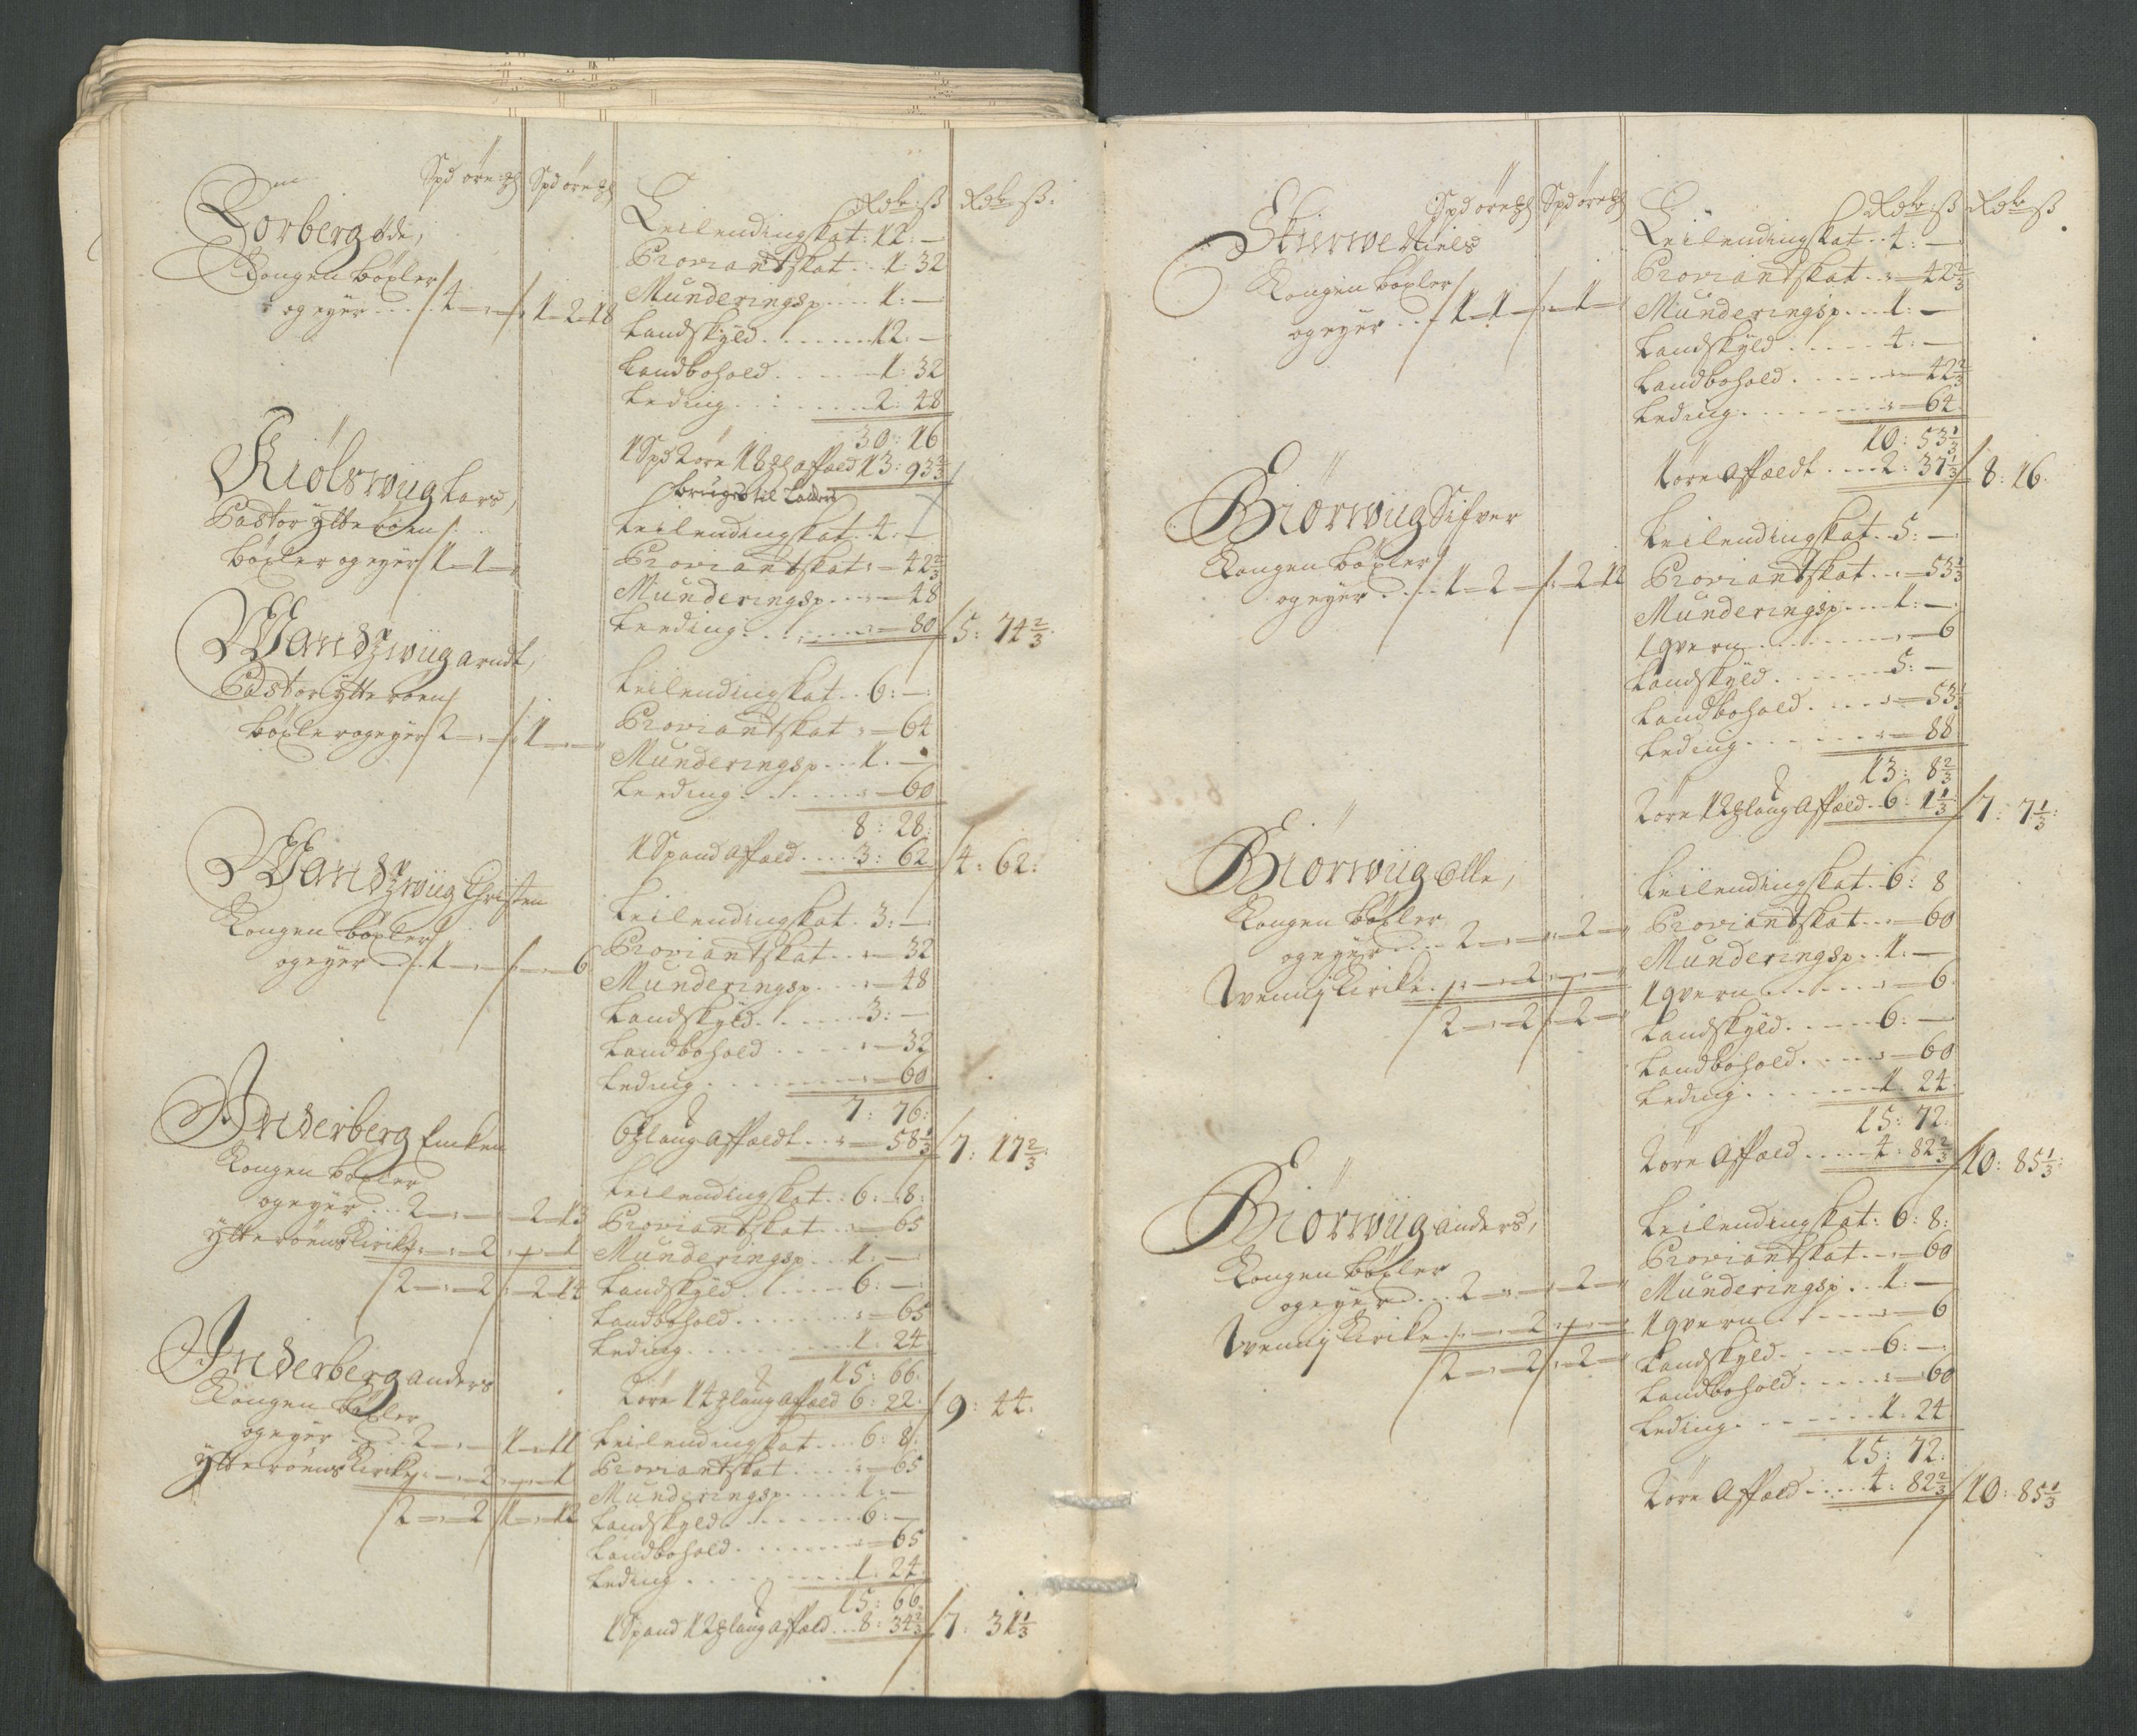 Spd øre Spd øre Rdr: ß Rdr: ß:
Forberg Øde,
Kongen böxler
og eyer .... 4 — — 1 — 2 — 18
Leilendingskat: 12: —
Proviantskat .. 1: 32
Munderingsp .... 1: —
Landskyld ....... 12: —
Landbohold ...... 1: 32
Leding ....... 2: 48
30: 16
1 Spd 2 øre 18 Affald 13: 93 2/3
bruges til
Kiölswiig Lars,
Pastor Ytterøen
böxler og eyer 1 — 1 —
Leilendingskat 4: —
Proviantskat: — 42 2/3
Munderingsp ... — 48
Leeding ...... — 80 5: 74 2/3
Wandzwiig Arndt,
Pastor Ytterøen
böxler og eyer 2 — — 1 — —
Leilendingskat .. 6: —
Proviantskat : — 64
Munderingsp ... 1: —
Leeding ..... — 60
8: 28:
1 Spand Affald .... 3: 62 4: 62:
Wandzwiig Christen
Kongen böxler
og eyer .... 1 — — — — 6
Leilendingskat . 3: —
Proviantskat .. — 32
Munderingsp ... — 48
Landskyld ...... 3: —
Landbohold ..... — 32
Leding ........ — 60
7: 76:
6 laug Affaldt .. — 58 1/3 7: 17 2/3
Inderberg Emken
Kongen böxler
og eyer ... 2 — — — 2 — 13
Ytterøens Kirke — — 2 — — 1
2 — — 2 — 2 — 14
Leilendingskat .. 6: 8:
Proviantskat .. — 65
Munderingsp .. 1: —
Landskyld ...... 6: —
Landbohold ....... — 65
Leding ........ 1: 24
15: 66:
2 øre 14 laug Affald 6: 22: 9: 44:
Inderberg Anders
Kongen böxler
og eyer .... 2 — — 1 — 11
Ytterøens Kirke — — 2 — — 1
2 — — 2 1 — — 12
Leilendingskat ... 6: 8:
Proviantskat .... — 65
Munderingsp .... 1: —
Landskyld ....... 6: —
Landbohold ....... — 65
Leding ....... 1: 24
15: 66
1 Spand 12 laug Affald ... 8: 34 2/3 7: 31 1/3
Spd øre Spd øre Rdr: ß Rdr ß
Skierwe Niels
Kongen böxler
og eyer ... 1 — 1 — — 1 —
Leilendingskat .. 4: —
Proviantskat .. — 42 2/3
Munderingsp .... 1: —
Landskyld ...... 4: —
Landbohold ..... — 42 2/3
Leding ........ — 64
10: 53 1/3
1 øre Affaldt .... 2: 37 1/3 8: 16.
Biörwiig Sifver
Kongen böxler
og eyer .... 1 — 2 — — 2 — 12
Leilendingskat . 5: —
Proviantskat .. — 53 1/3
Munderingsp .... 1: —
1 qvern ....... — 6
Landskyld ...... 5: —
Landbohold .... — 53 1/3
Leding ....... — 88
13: 8 2/3
2 øre 12 laug Affald .. 6: 1 1/3 7: 7 1/3:
Biörwiig Olle,
Kongen böxler
og eyer .... 2 — — — 2 —
Wennij Kirke ... — — 2 — —
2 — — 2 — 2 —
Leilendingskat . 6: 8
Proviantskat .. — 60
Munderingsp .. 1: —
1 qvern ...... — 6
Landskyld ..... 6: —
Landbohold ..... — 60
Leding ....... 1: 24
15: 72:
2 øre Affald ..... 4: 82 2/3 10: 85 1/3:
Biörwiig Anders,
Kongen böxler
og eyer .... 2 — — — 2 —
Wennij Kirke ... — — 2 — —
2 — — 2 — 2 —
Leilendingskat: 6: 8:
Proviantskat ... — 60
Munderingsp ... 1: —
1 qvern ..... — 6
Landskyld ..... 6: —
Landbohold ..... — 60
Leding ...... 1: 24
15: 72:
2 øre Affald ..... 4: 82 2/3 10: 85 1/3